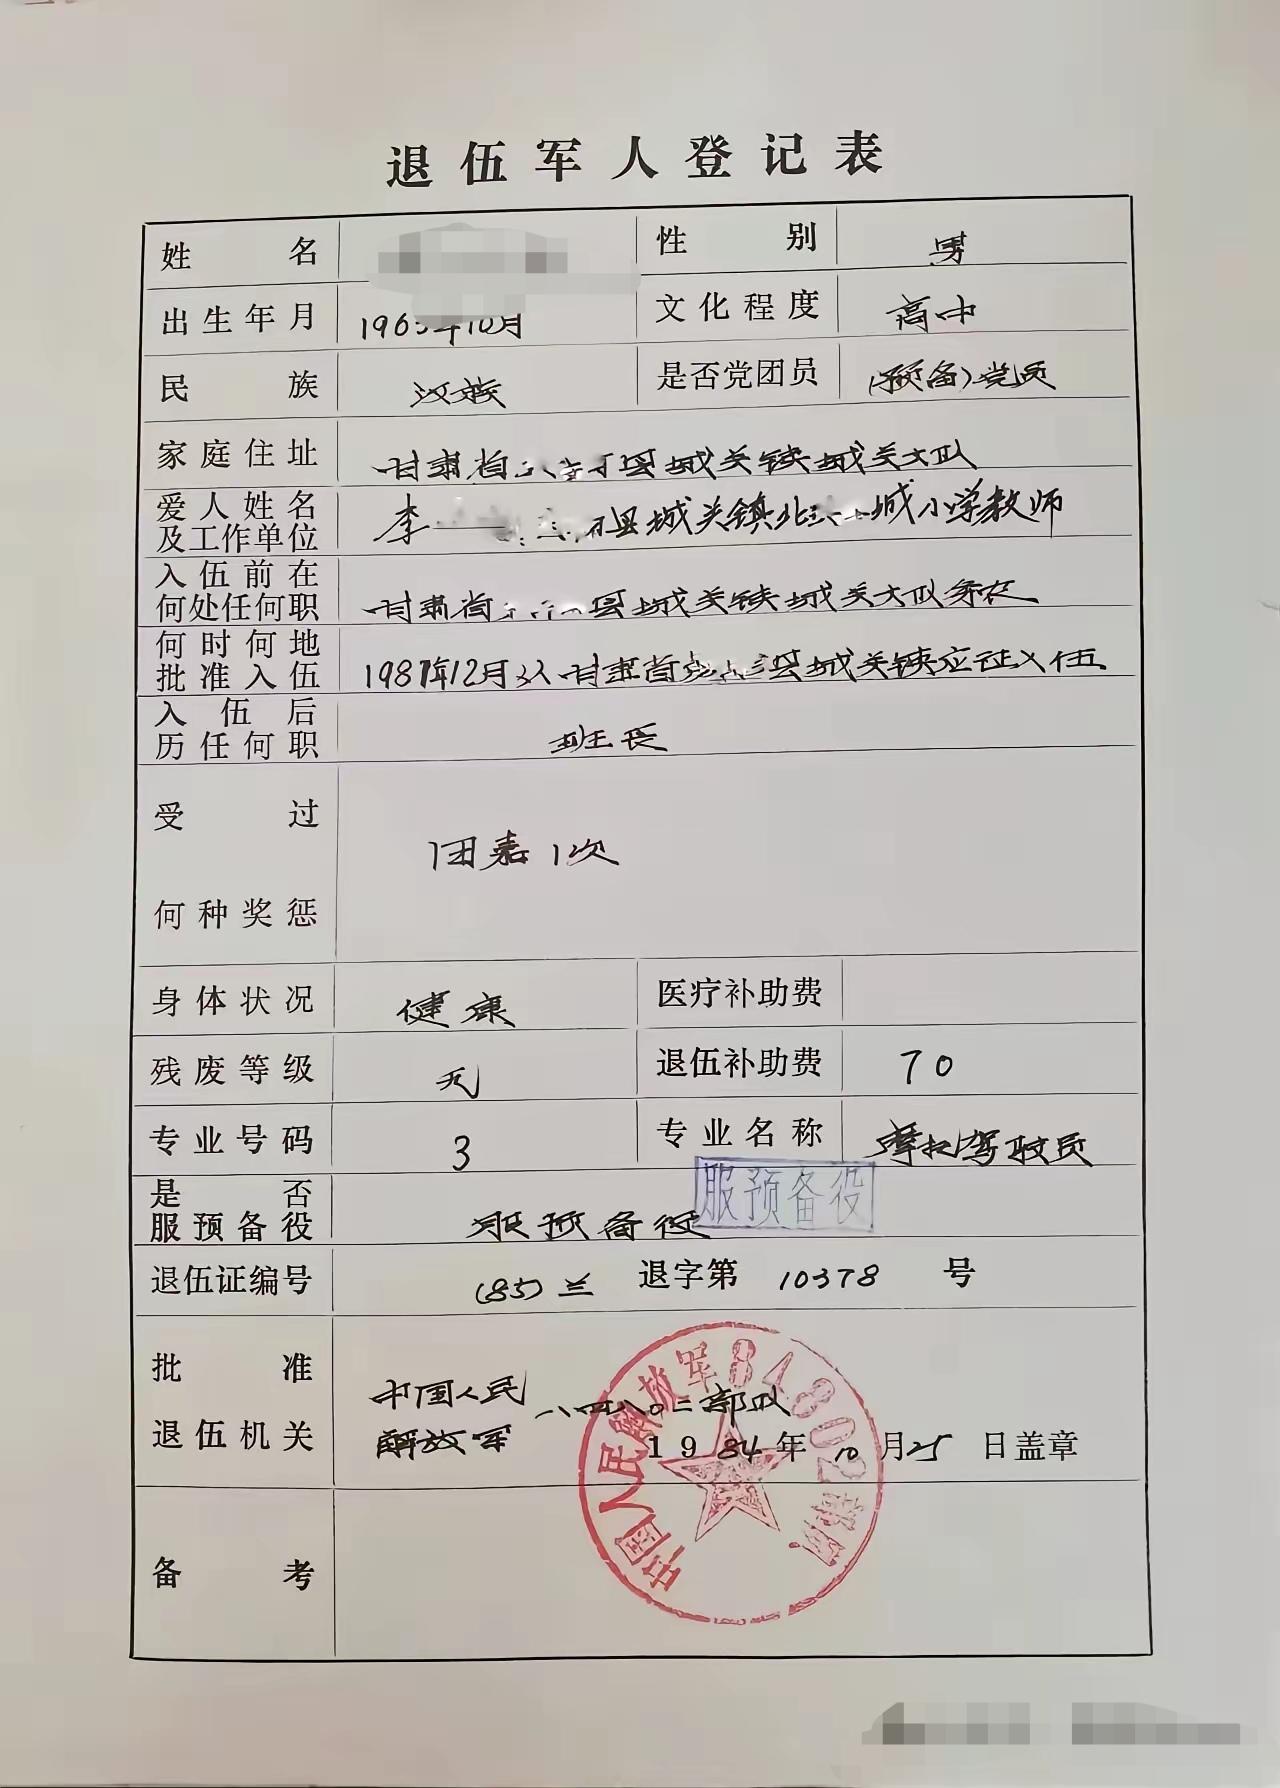 退伍军人登记表
姓名 性别 男
出生年月 1963年10月 文化程度 高中
民族 汉族 是否党团员 (预备)党员
家庭住址 甘肃省 县城关镇城关大队
爱人姓名
及工作单位 李 县城关镇北 城小学教师
入伍前在
何处任何职 甘肃省 县城关镇城关大队务农
何时何地
批准入伍 1981年12月从甘肃省 县城关镇应征入伍
入伍后
历任何职 班长
受过
何种奖惩 团嘉1次
身体状况 健康 医疗补助费
残废等级 无 退伍补助费 70
专业号码 3 专业名称 摩托驾驶员
是否
服预备役 服预备役 服预备役
退伍证编号 (85)兰 退字第 10378 号
批准
退伍机关 中国人民
解放军 八四八〇二部队
1984年10月25日盖章
中国人民解放军84802部队
备考